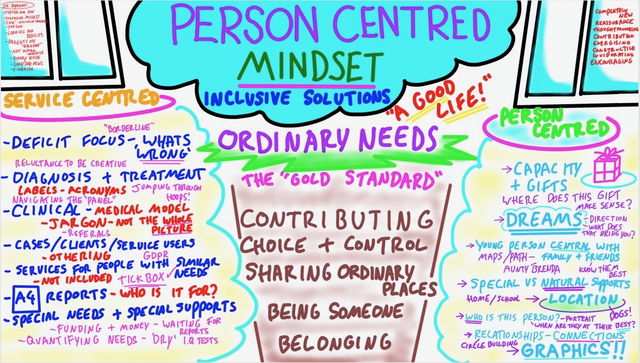 PERSON CENTRED
MINDSET
INCLUSIVE SOLUTIONS
"A GOOD
LIFE!"
COMPLETELY
NEW
REASSURANCE
THOUGHT PROVOKING
CONTRIBUTION
ENERGISING
CONSTRUCTIVE
ENCOURAGING
SERVICE CENTRED
"BORDERLINE"
-DEFICIT FOCUS - WHATS
'WRONG'
RELUCTANCE TO BE CREATIVE
-DIAGNOSIS + TREATMENT
LABELS - ACRONYMS
JUMPING THROUGH
HOOPS!
NAVIGATING THE "PANEL"
-CLINICAL - MEDICAL MODEL
-JARGON - NOT THE WHOLE
PICTURE
-REFERRALS
-CASES/CLIENTS/SERVICE USERS
-OTHERING
GDPR
-SERVICES FOR PEOPLE WITH SIMILAR
NEEDS
-NOT INCLUDED
TICK BOX
-A4 REPORTS - WHO IS IT FOR?
-SPECIAL NEEDS + SPECIAL SUPPORTS
-FUNDING + MONEY - WAITING FOR
REPORTS
-QUANTIFYING NEEDS - 'DRY' I.Q TESTS
ORDINARY NEEDS
THE "GOLD STANDARD"
CONTRIBUTING
CHOICE + CONTROL
SHARING ORDINARY
PLACES
BEING SOMEONE
BELONGING
PERSON
CENTRED
→CAPACITY
+ GIFTS
WHERE DOES THIS GIFT
MAKE SENSE?
→DREAMS
-DIRECTION
WHAT DOES
THAT BRING YOU?
→YOUNG PERSON CENTRAL WITH
MAPS/PATH - FAMILY + FRIENDS
AUNTY BRENDA
KNOW THEM
BEST
→SPECIAL VS NATURAL SUPPORTS
HOME/SCHOOL→ LOCATION
→WHO IS THIS PERSON? - PORTRAIT
DOGS!
WHEN ARE THEY AT THEIR BEST?
→RELATIONSHIPS - CONNECTIONS
CIRCLE BUILDING
→GRAPHICS!!